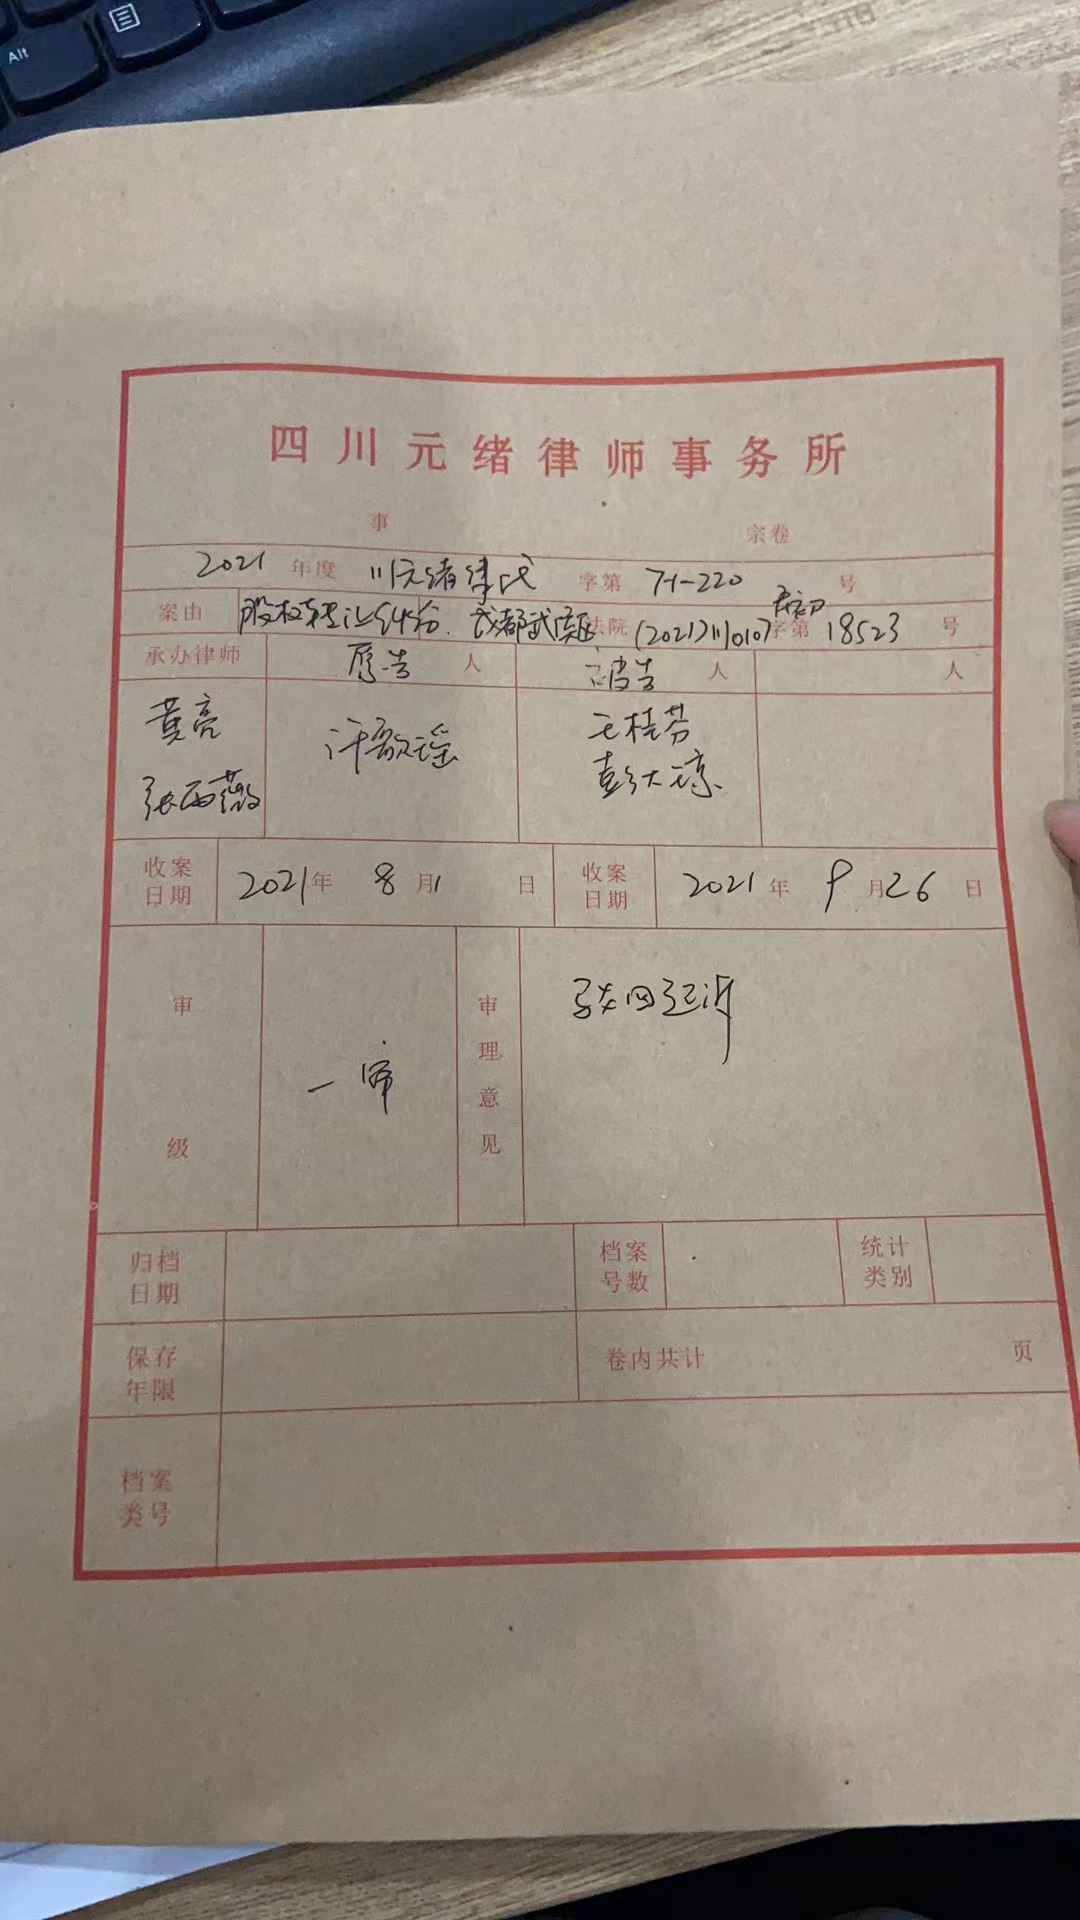 Alt
四川元绪律师事务所
事 宗卷
2021 年度 川元绪律民 字第 71-220 号
案由 股权转让纠纷 成都武侯区法院 (2021)川0107民初字第 18523 号
承办律师 原告 人 被告 人 人
黄亮 汪歌谣 王桂芬
张雨薇
收案日期 2021年 8月1日 收案日期 2021年 9月26日
审级 一审 审理意见
归档日期 档案号数 统计类别
保存年限 卷内共计 页
档案类号